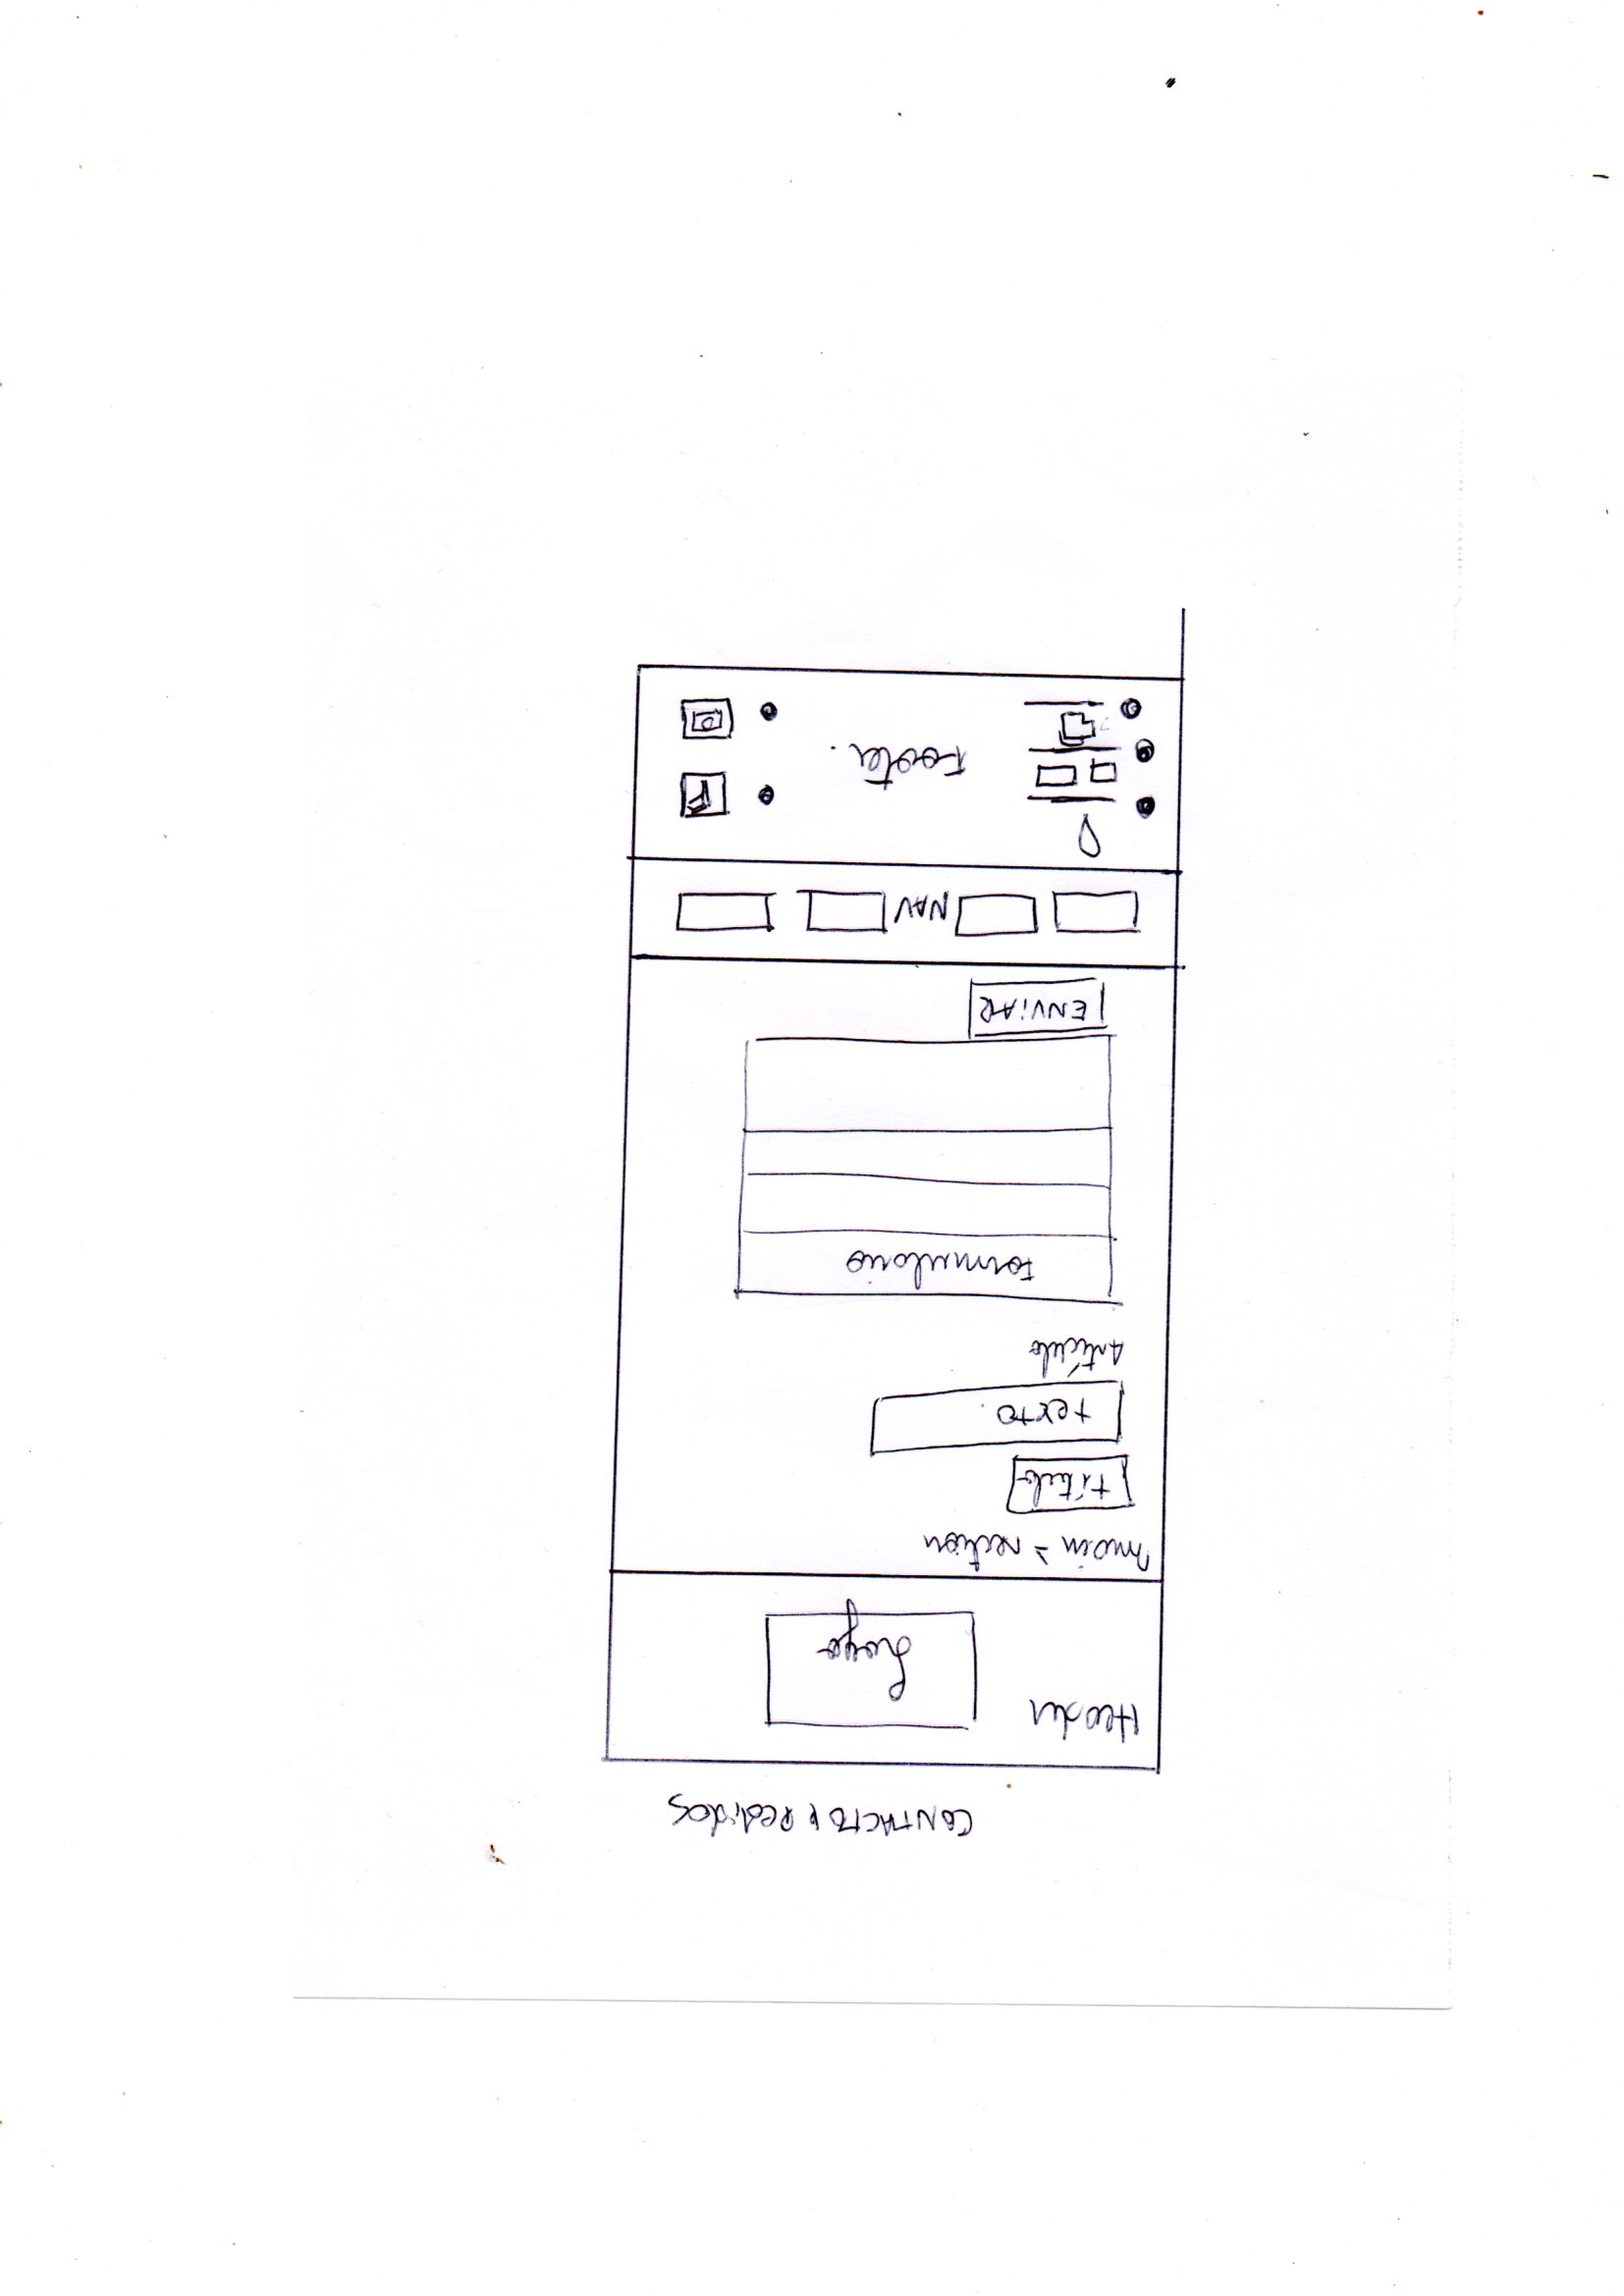 CONTACTO y Pedidos
Header
Logo
main > section
título
texto.
Artículo
Formulario
ENViAR
NAV
Footer.
F